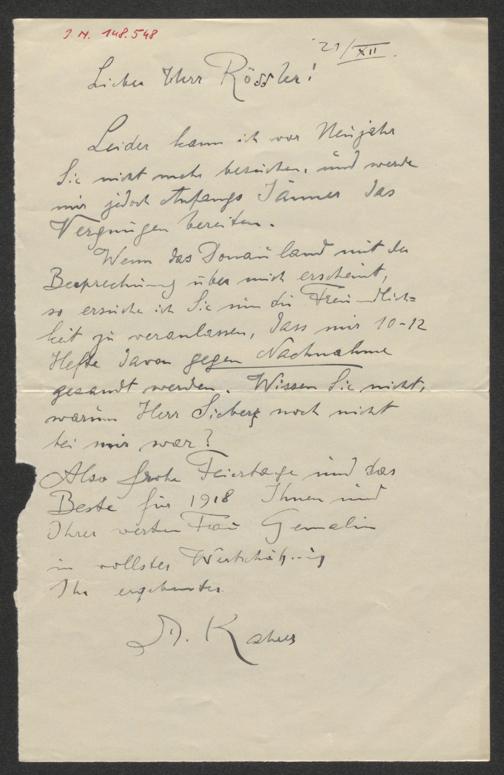 J. N. 148.548
21/XII.
Lieber Herr Rössler!
Leider kann ich vor Neujahr
Sie nicht mehr besuchen, und werde
mir jedoch Anfangs Jänner das
Vergnügen bereiten.
Wenn das Donauland mit der
Besprechung über mich erscheint,
so ersuche ich Sie um die Freundlich=
keit zu veranlassen, dass mir 10-12
Hefte davon gegen Nachnahme
gesandt werden. Wissen Sie nicht,
warum Herr Sieberz noch nicht
bei mir war?
Also frohe Feiertage und das
Beste für 1918 Ihnen und
Ihrer werten Frau Gemalin
in vollster Wertschätzung
Ihr ergebenster